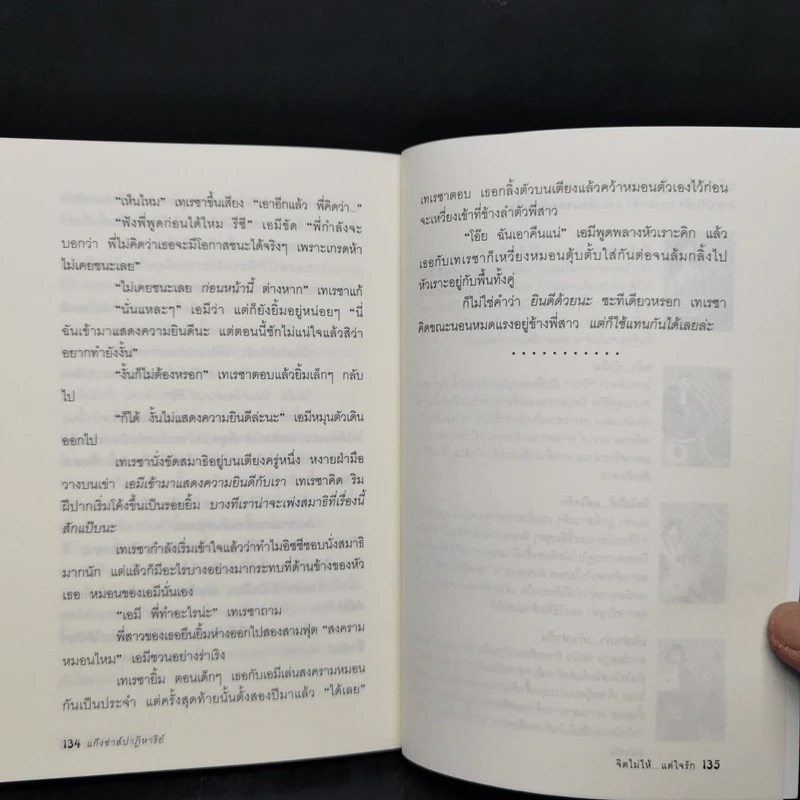 “เห็นไหม” เทเรซาขึ้นเสียง “เอาอีกแล้ว พี่คิดว่า...”
“ฟังพี่พูดก่อนได้ไหม รีซี” เอมีขัด “พี่กำลังจะ
บอกว่า พี่ไม่คิดว่าเธอจะมีโอกาสชนะได้จริงๆ เพราะเกรดห้า
ไม่เคยชนะเลย”
“ไม่เคยชนะเลย ก่อนหน้านี้ ต่างหาก” เทเรซาแก้
“นั่นแหละๆ” เอมีว่า แต่ก็ยังยิ้มอยู่หน่อยๆ “นี่
ฉันเข้ามาแสดงความยินดีนะ แต่ตอนนี้ชักไม่แน่ใจแล้วสิว่า
อยากทำยังงั้น”
“งั้นก็ไม่ต้องหรอก” เทเรซาตอบแล้วยิ้มเล็กๆ กลับ
ไป
“ก็ได้ งั้นไม่แสดงความยินดีล่ะนะ” เอมีหมุนตัวเดิน
ออกไป
เทเรซานั่งขัดสมาธิอยู่บนเตียงครู่หนึ่ง หงายฝ่ามือ
วางบนเข่า เอมีเข้ามาแสดงความยินดีกับเรา เทเรซาคิด ริม
ฝีปากเริ่มโค้งขึ้นเป็นรอยยิ้ม บางทีเราน่าจะเพ่งสมาธิที่เรื่องนี้
สักแป๊บนะ
เทเรซากำลังเริ่มเข้าใจแล้วว่าทำไมอิซซีชอบนั่งสมาธิ
มากนัก แต่แล้วก็มีอะไรบางอย่างมากระทบที่ด้านข้างของหัว
เธอ หมอนของเอมีนั่นเอง
“เอมี พี่ทำอะไรน่ะ” เทเรซาถาม
พี่สาวของเธอยืนยิ้มห่างออกไปสองสามฟุต “สงคราม
หมอนไหม” เอมีชวนอย่างร่าเริง
เทเรซายิ้ม ตอนเด็กๆ เธอกับเอมีเล่นสงครามหมอน
กันเป็นประจำ แต่ครั้งสุดท้ายนั้นตั้งสองปีมาแล้ว “ได้เลย”
134 แก๊งซ่าส์ปาฏิหาริย์
เทเรซาตอบ เธอกลิ้งตัวบนเตียงแล้วคว้าหมอนตัวเองไว้ก่อน
จะเหวี่ยงเข้าที่ข้างลำตัวพี่สาว
“โอ๊ย ฉันเอาคืนแน่” เอมีพูดพลางหัวเราะคิก แล้ว
เธอกับเทเรซาก็เหวี่ยงหมอนตุ้บตั้บใส่กันต่อจนล้มกลิ้งไป
หัวเราะอยู่กับพื้นทั้งคู่
ก็ไม่ใช่คำว่า ยินดีด้วยนะ ซะทีเดียวหรอก เทเรซา
คิดขณะนอนหมดแรงอยู่ข้างพี่สาว แต่ก็ใช้แทนกันได้เลยล่ะ
. . . . . . . . . . .
จิตไม่ให้...แต่ใจรัก 135